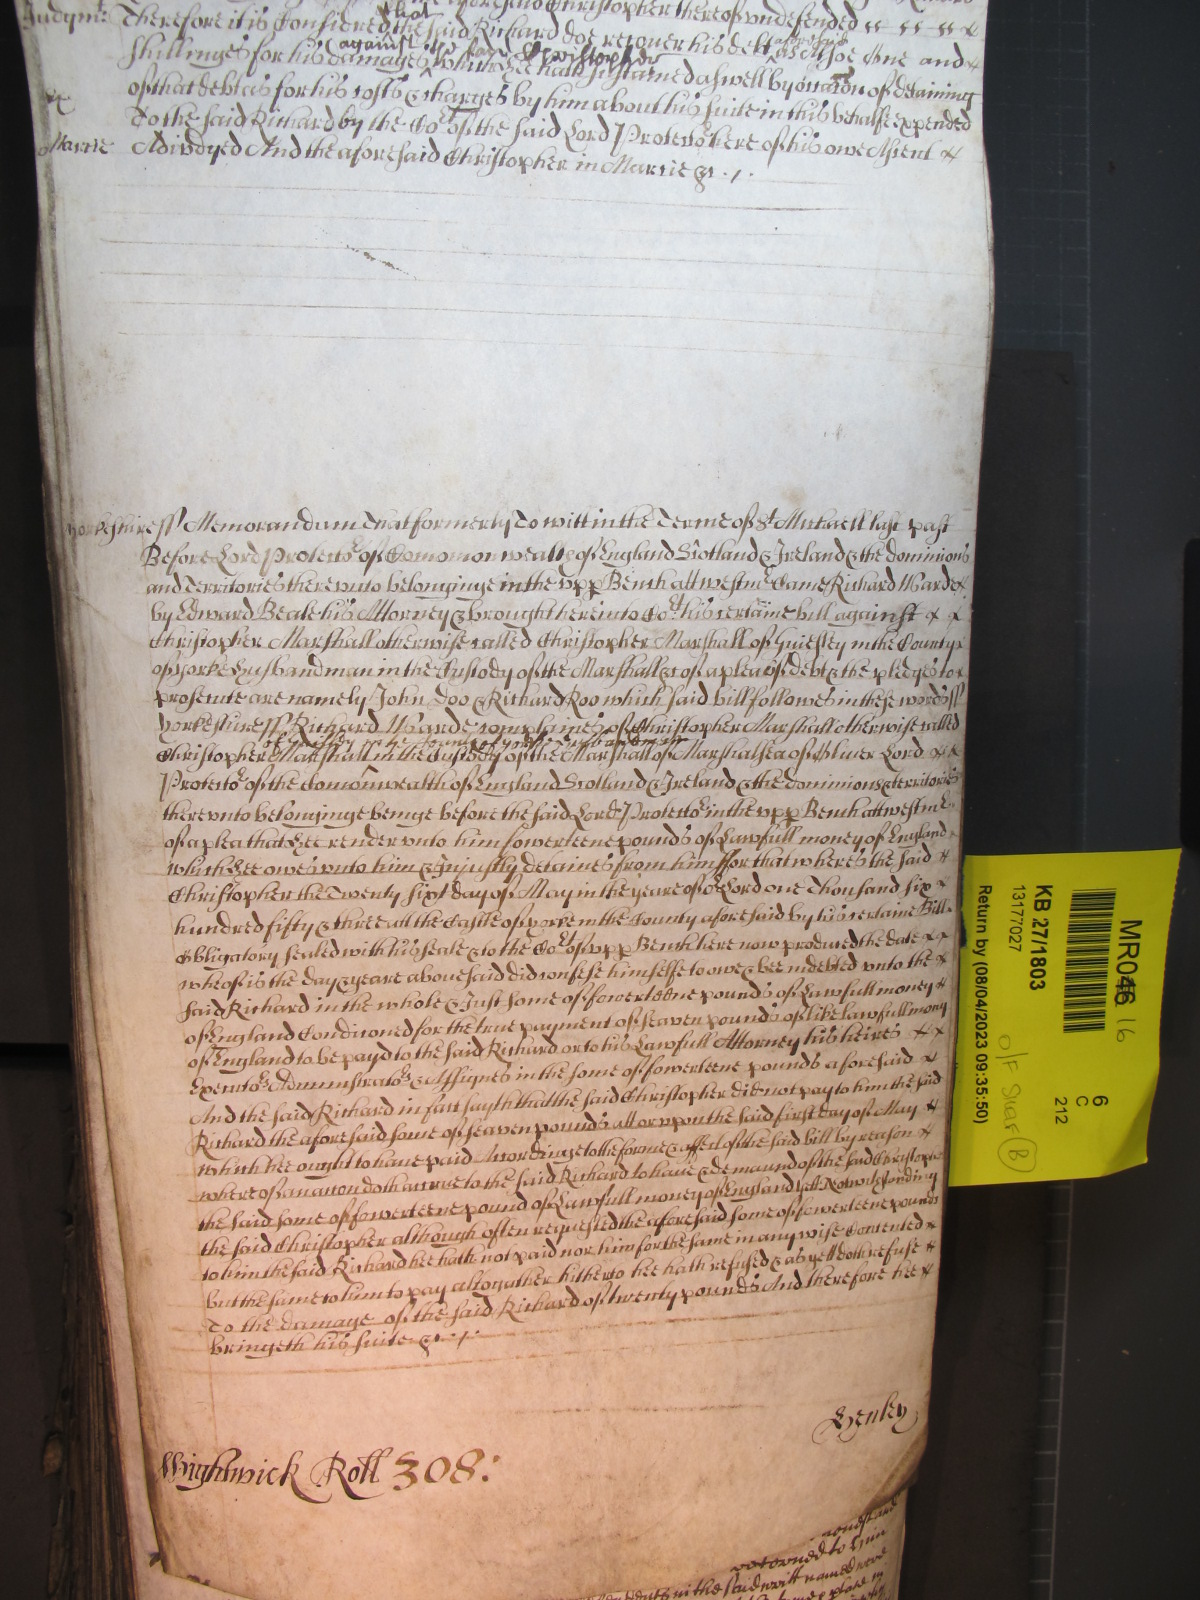 Judgmt. Therefore it is Considered that the said Richard doe recover his debt aforesaid
Shillinges for his damages which hee hath sustained aswell by occasion of detaining
against the said Christopher
of that debt as for his costs & charges by him about his suite in this behalfe expended
To the said Richard by the Cort of the said Lord Protector here of his owe Assent
Marcie Adiudged And the aforesaid Christopher in Marcie &c
Yorkshire ss Memorandum That formerly To witt in the Terme of St Michaell last past
Before Lord Protector of Comonwealth of England Scotland & Ireland & the dominions
and Territories thereunto belonginge in the upp Bench att westmr Came Richard Warde
by Edward Beale his Attorney & brought here into Cort his certaine bill against
Christopher Marshall otherwise called Christopher Marshall of Guiesley in the County
of Yorke Husbandman in the Custody of the Marshall &c of a plea of debt & the pledges to
prosecute are namely John Doo & Richard Roo which said bill followes in these words ss
Yorkeshire ss Richard Warde complaines of Christopher Marshall otherwise called
of Guiesley in the County of Yorke husbandman
Christopher Marshall in the Custody of the Marshall of Marshalsea of Oliver Lord
Protector of the Comonwealth of England Scotland & Ireland & the dominions & territories
thereunto belonginge beinge before the said Lord Protector in the upp Bench att westmr
of a plea that hee render unto him fowerteene pounds of Lawfull money of England
which hee owes unto him & Injustly detaines from him ffor that wheres the said
Christopher the Twenty sixt day of May in the yeare of or Lord one Thousand six
hundred fifty & three att the Castle of yorke in the County aforesaid by his certaine Bill
Obligatory sealed with his seale & to the Cort of upp Bench here now produced the date
wheof is the day & yeare abovesaid did confese himselfe to owe & bee indebted unto the
said Richard in the whole & Just some of fowerteene pounds of Lawfull money
of England Conditioned for the true payment of seaven pounds of like lawfull mony
of England to be payd to the said Richard or to his Lawfull Attorney his heires
Executors Administrators & Assignes in the some of fowerteene pounds aforesaid
And the said Richard in fact sayth that the said Christopher did not pay to him the said
Richard the aforesaid some of seaven pounds att or uppon the said first day of May
which hee ought to have paid Accordinge to the forme & effect of the said bill by reason
whereof an action doth accrue to the said Richard to have & demaund of the said Christopher
the said some of fowerteene pound of Lawfull money of England yett Notwithstanding
the said Christopher although often requested the aforesaid some of fowerteene pounds
to him the said Richard hee hath not paid nor him for the same in any wise Contented
but the same to him to pay altogather hitherto hee hath refused & as yett doth refuse
To the damage of the said Richard of twenty pounds And therefore hee
bringeth his suite &c
Henley
Wightwick Roll 308:
retorned to him
in the said writt named were
MR046 16
KB 27/1803
13177027
Return by (08/04/2023 09:35:50)
6
C
212
O/F Shelf B